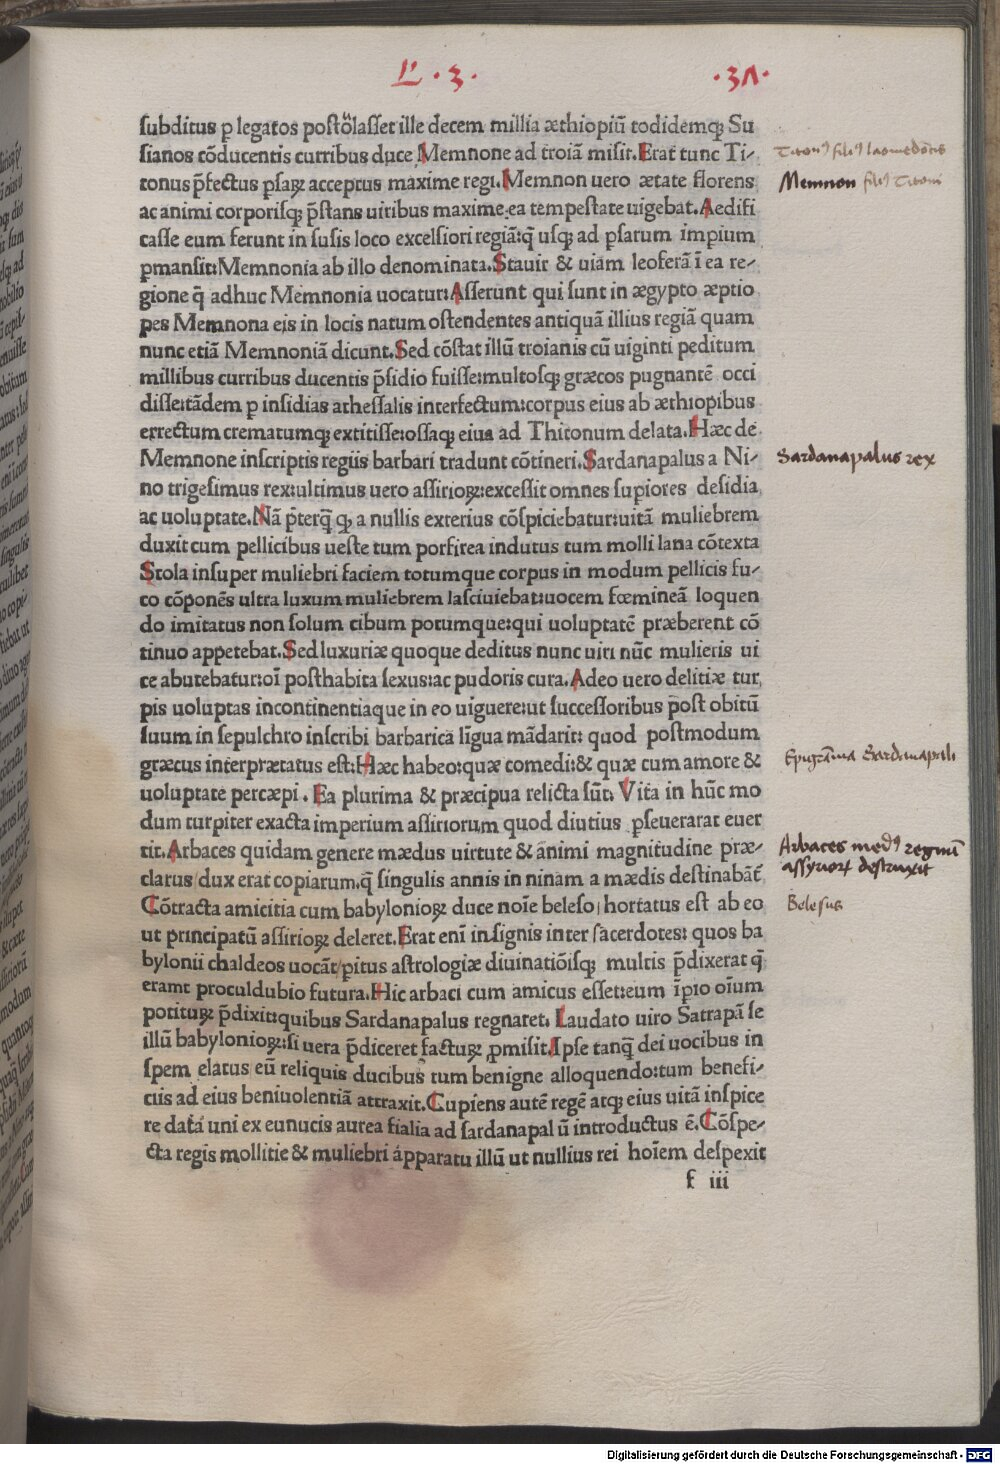 Lʳ · 3 · · 3Λ ·
subditus p legatos postōlasset ille decem millia æthiopiū todidemqꝫ Su
sianos cōducentis curribus duce Memnone ad troiā misit. Erat tunc Ti⸗
tonus p̄fectus psaꝝ acceptus maxime regi. Memnon uero ætate florens
ac animi corporisqꝫ p̄stans uiribus maxime ea tempestate uigebat. Aedifi
casse eum ferunt in susis loco excelsiori regiā: q̄ usqꝫ ad psarum impium
pmansit: Memnonia ab illo denominata. Stauit & uiam leoferā ī ea re⸗
gione q̄ adhuc Memnonia uocatur: Asserunt qui sunt in ægypto æptio
pes Memnona eis in locis natum ostendentes antiquā illius regiā quam
nunc etiā Memnoniā dicunt. Sed cōstat illū troianis cū uiginti peditum
millibus curribus ducentis p̄sidio fuisse: multosqꝫ græcos pugnantē occi
disse: tādem p insidias athessalis interfectum: corpus eius ab æthiopibus
errectum crematumqꝫ extitisse: ossaqꝫ eius ad Thitonum delata. Hæc de
Memnone inscriptis regiis barbari tradunt cōtineri. Sardanapalus a Ni⸗
no trigesimus rex: ultimus uero assirioꝝ: excessit omnes supiores desidia
ac uoluptate. Nā p̄terq̄ qꝫ a nullis exterius cōspiciebatur: uitā muliebrem
duxit cum pellicibus ueste tum porfirea indutus tum molli lana cōtexta
Stola insuper muliebri faciem totumque corpus in modum pellicis fu⸗
co cōponēs ultra luxum muliebrem lasciuiebat: uocem fœmineā loquen
do imitatus non solum cibum potumque: qui uoluptatē præberent cō
tinuo appetebat. Sed luxuriæ quoque deditus nunc uiri nūc mulieris ui
ce abutebatur: oī posthabita sexus: ac pudoris cura. Adeo uero delitiæ tur
pis uoluptas incontinentiaque in eo uiguere: ut successoribus post obitū
suum in sepulchro inscribi barbarica līgua mādarit: quod postmodum
græcus interprætatus est: Hæc habeo: quæ comedi: & quæ cum amore &
uoluptate percæpi. Ea plurima & præcipua relicta sūt. Vita in hūc mo
dum turpiter exacta imperium assiriorum quod diutius pseuerarat euer
tit. Arbaces quidam genere mædus uirtute & animi magnitudine præ⸗
clarus / dux erat copiarum, q̄ singulis annis in ninam a mædis destinabāt̄
Cōtracta amicitia cum babylonioꝝ duce noīe beleso / hortatus est ab eo
ut principatū assirioꝝ deleret. Erat enī insignis inter sacerdotes: quos ba
bylonii chaldeos uocāt / pitus astrologiæ diuinatiōisqꝫ multis p̄dixerat q̄
erant proculdubio futura. Hic arbaci cum amicus esset: eum īpio oīum
potituꝝ p̄dixit: quibus Sardanapalus regnaret. Laudato uiro Satrapā se
illū babylonioꝝ: si uera p̄diceret factuꝝ pmisit. Ipse tanq̄ dei uocibus in
spem elatus eū reliquis ducibus tum benigne alloquendo: tum benefi⸗
ciis ad eius beniuolentiā attraxit. Cupiens autē regē atqꝫ eius uitā inspice
re data uni ex eunucis aurea fialia ad sardanapalū introductus ē. Cōspe⸗
cta regis mollitie & muliebri apparatu illū ut nullius rei hoīem despexit
f iii
Titonꝰ filiꝰ laomedōtis
Memnon filiꝰ Titoni
Sardanapalus rex
Epigrāma Sardanapali
Arbaces medꝰ regnū
assyrioꝝ destruxit
Belesus
Digitalisierung gefördert durch die Deutsche Forschungsgemeinschaft - DFG